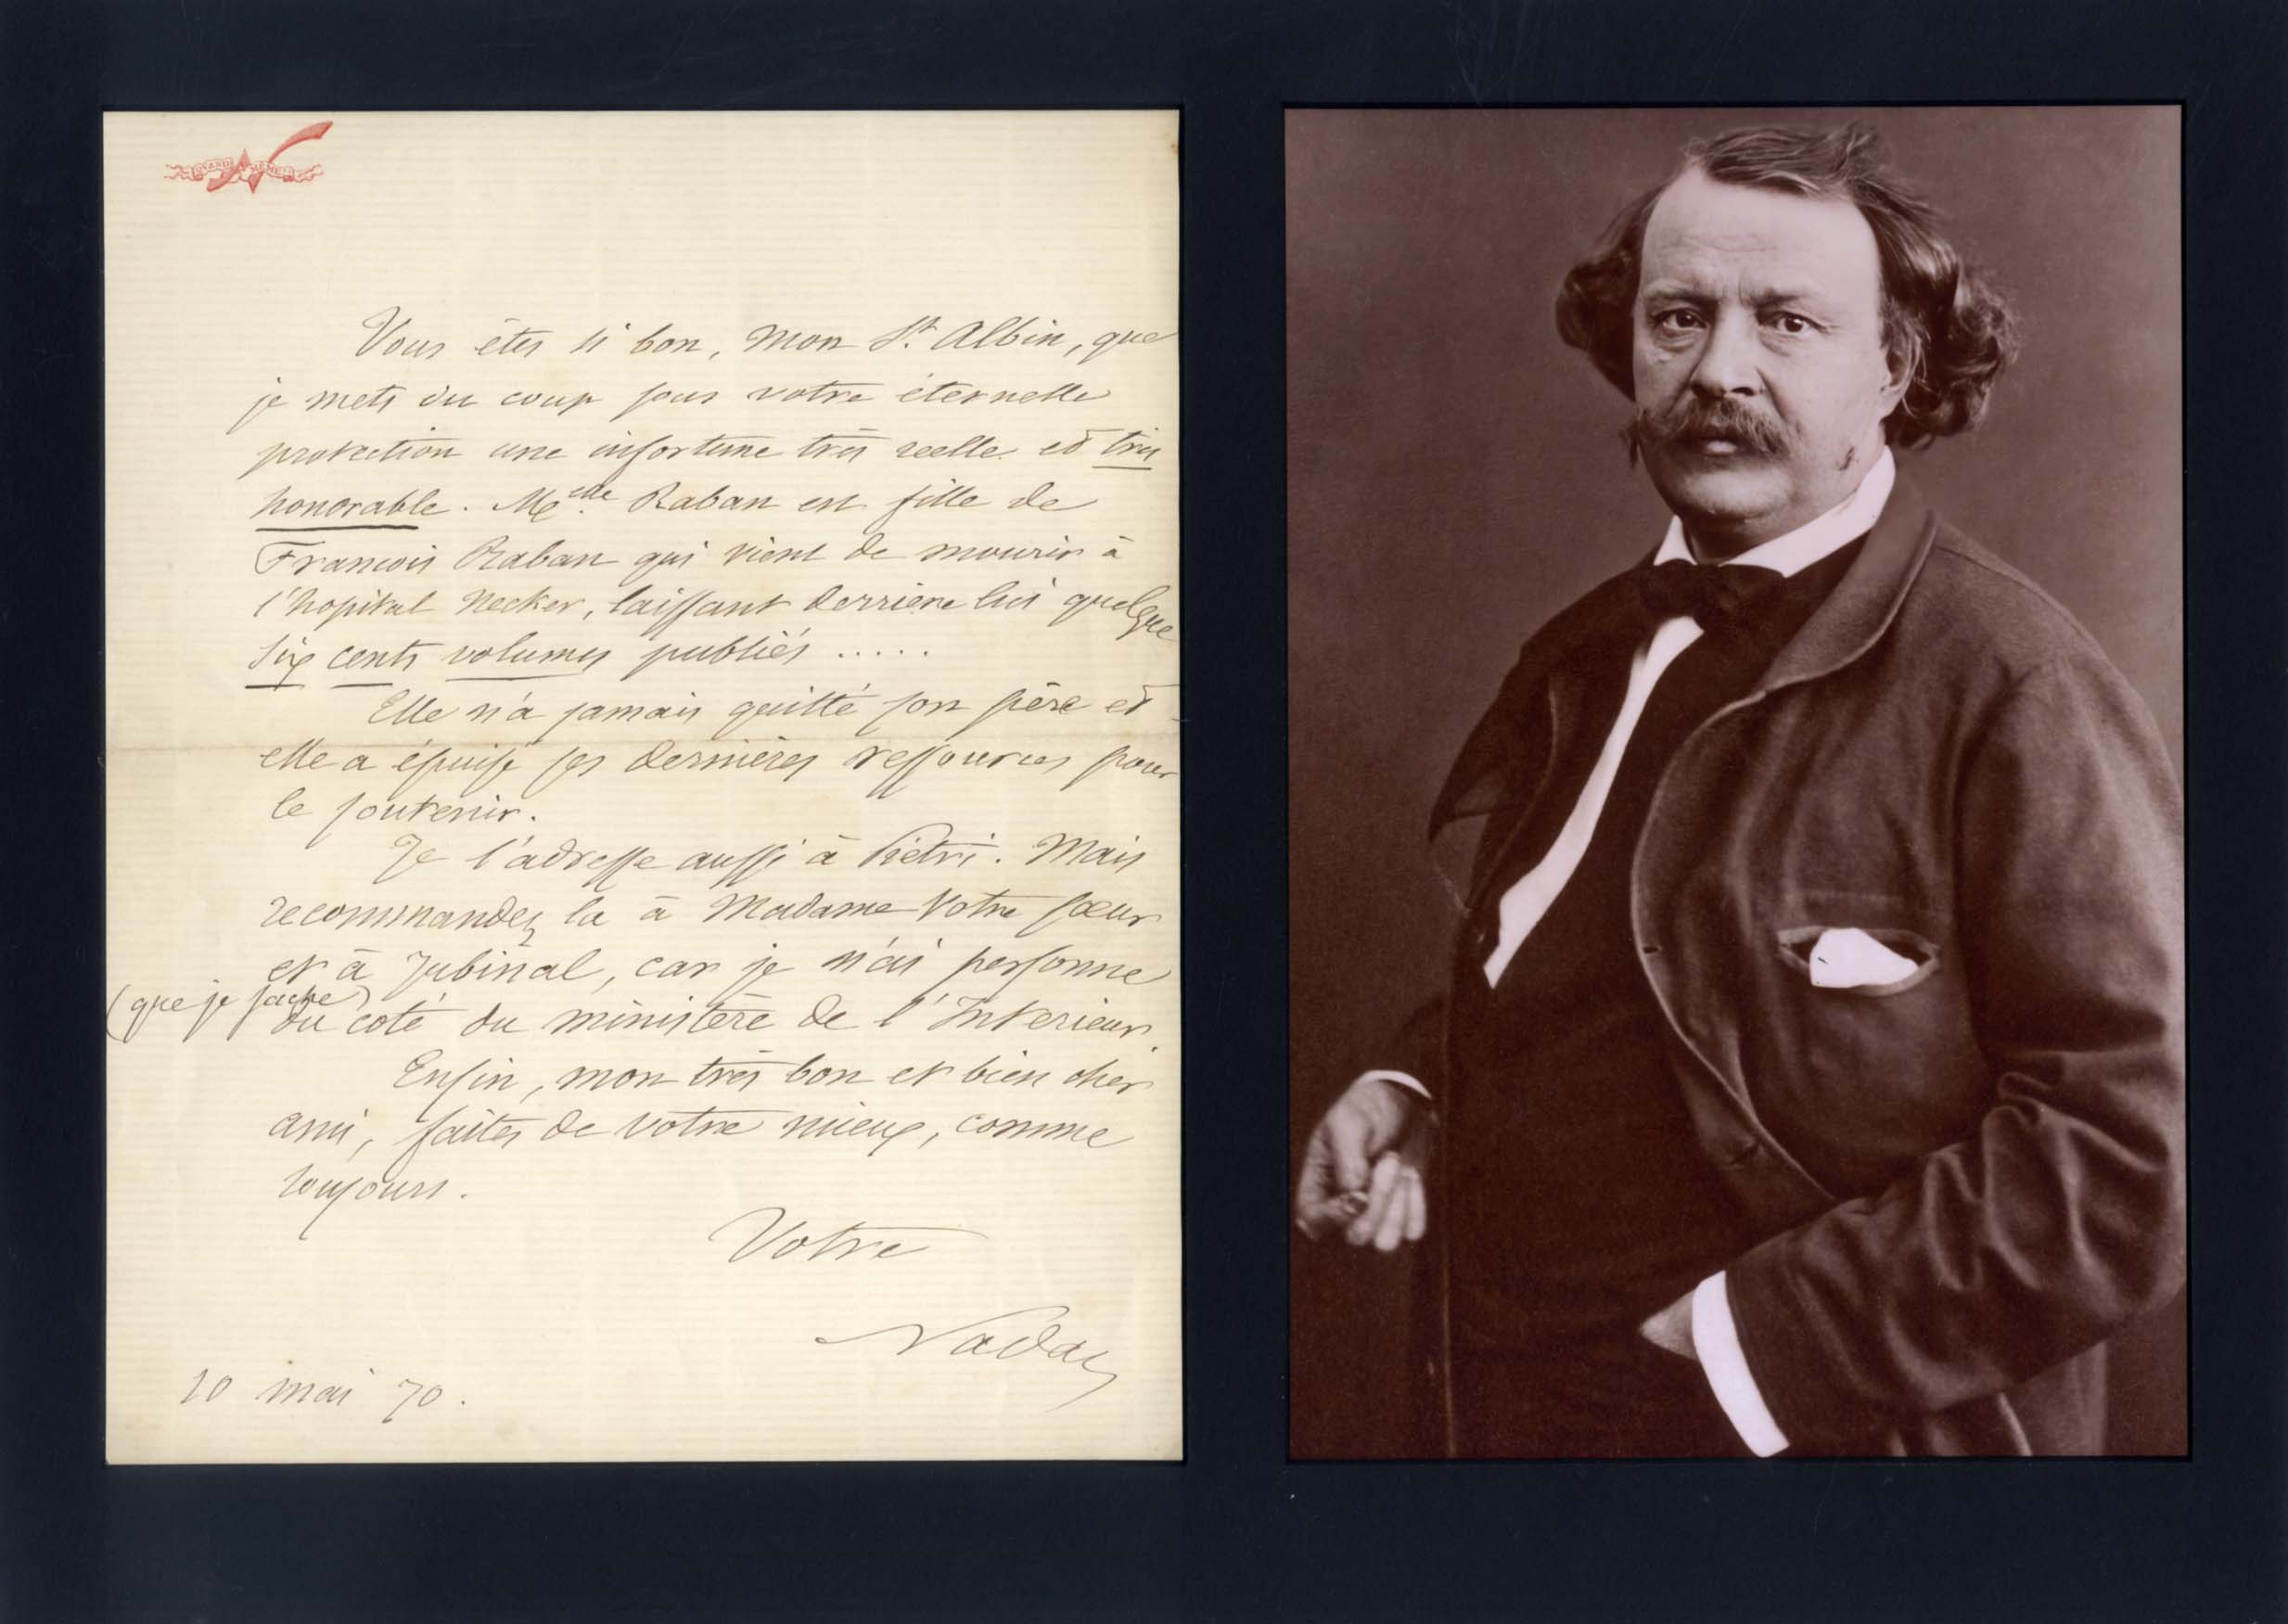 QUAND MÊME
Vous êtes si bon, mon St. Albin, que
je mets du coup sous votre éternelle
protection une infortune très réelle et très
honorable. Melle Raban est fille de
François Raban qui vient de mourir à
l'hopital Necker, laissant derrière lui quelque
six cents volumes publiés .....
Elle n'a jamais quitté son père et
elle a épuisé ses dernières ressources pour
le soutenir.
Je l'adresse aussi à Piétri. Mais
recommandez la à Madame Votre soeur
et à Jubinal, car je n'ai personne
(que je sache)
du coté du ministère de l'Intérieur.
Enfin, mon très bon et bien cher
ami, faites de votre mieux, comme
toujours.
Votre
Nadar
10 mai 70.